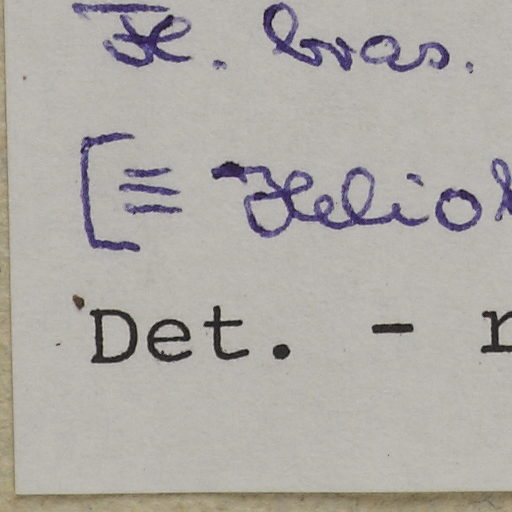 Fl. bras.
[≡ Helio
Det. -